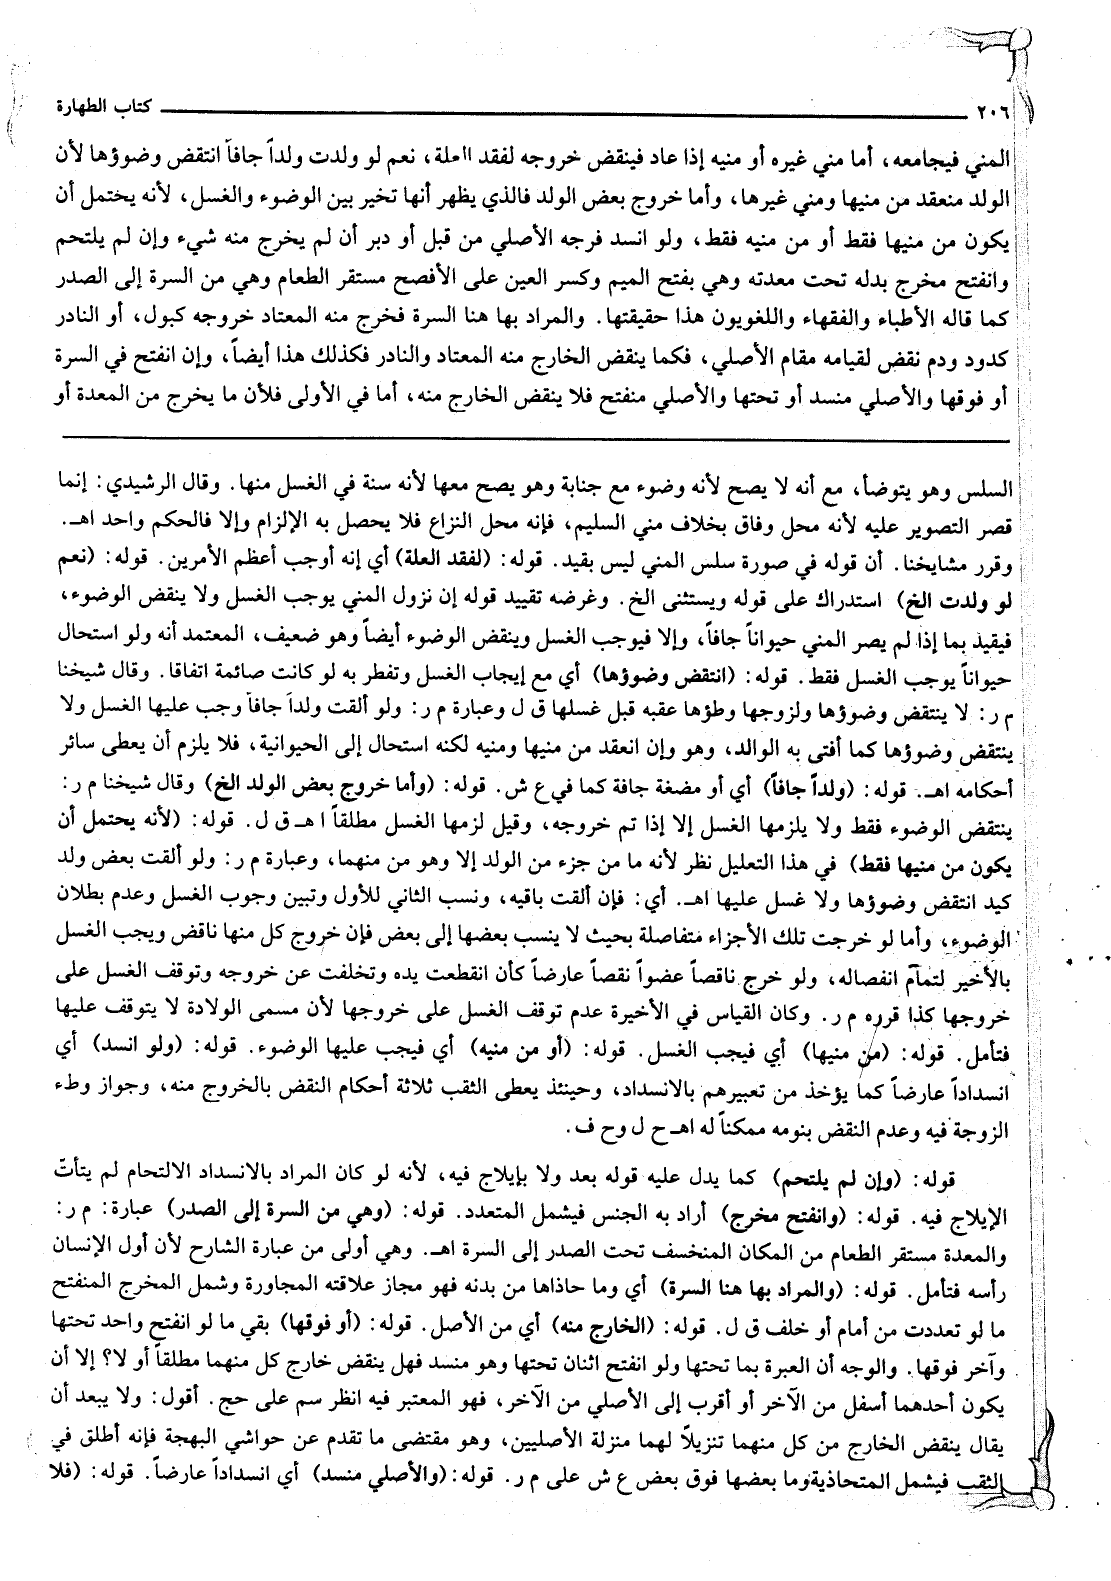 ٢٠٦ كتاب الطهارة
المني فيجامعه، أما مني غيره أو منيه إذا عاد فينقض خروجه لفقد العلة، نعم لو ولدت ولداً جافاً انتقض وضوؤها لأن
الولد منعقد من منيها ومني غيرها، وأما خروج بعض الولد فالذي يظهر أنها تخير بين الوضوء والغسل، لأنه يحتمل أن
يكون من منيها فقط أو من منيه فقط، ولو انسد فرجه الأصلي من قبل أو دبر أن لم يخرج منه شيء وإن لم يلتحم
وانفتح مخرج بدله تحت معدته وهي بفتح الميم وكسر العين على الأفصح مستقر الطعام وهي من السرة إلى الصدر
كما قاله الأطباء والفقهاء واللغويون هذا حقيقتها. والمراد بها هنا السرة فخرج منه المعتاد خروجه كبول، أو النادر
كدود ودم نقض لقيامه مقام الأصلي، فكما ينقض الخارج منه المعتاد والنادر فكذلك هذا أيضاً، وإن انفتح في السرة
أو فوقها والأصلي منسد أو تحتها والأصلي منفتح فلا ينقض الخارج منه، أما في الأولى فلأن ما يخرج من المعدة أو
السلس وهو يتوضأ، مع أنه لا يصح لأنه وضوء مع جنابة وهو يصح معها لأنه سنة في الغسل منها. وقال الرشيدي: إنما
قصر التصوير عليه لأنه محل وفاق بخلاف مني السليم، فإنه محل النزاع فلا يحصل به الإلزام وإلا فالحكم واحد اهـ.
وقرر مشايخنا. أن قوله في صورة سلس المني ليس بقيد. قوله: (لفقد العلة) أي إنه أوجب أعظم الأمرين. قوله: (نعم
لو ولدت الخ) استدراك على قوله ويستثنى الخ. وغرضه تقييد قوله إن نزول المني يوجب الغسل ولا ينقض الوضوء،
فيقيد بما إذا لم يصر المني حيواناً جافاً، وإلا فيوجب الغسل وينقض الوضوء أيضاً وهو ضعيف، المعتمد أنه ولو استحال
حيواناً يوجب الغسل فقط. قوله: (انتقض وضوؤها) أي مع إيجاب الغسل وتفطر به لو كانت صائمة اتفاقا. وقال شيخنا
م ر: لا ينتقض وضوؤها ولزوجها وطؤها عقبه قبل غسلها ق ل وعبارة م ر: ولو ألقت ولداً جافاً وجب عليها الغسل ولا
ينتقض وضوؤها كما أفتى به الوالد، وهو وإن انعقد من منيها ومنيه لكنه استحال إلى الحيوانية، فلا يلزم أن يعطى سائر
أحكامه اهـ. قوله: (ولداً جافاً) أي أو مضغة جافة كما في ع ش. قوله: (وأما خروج بعض الولد الخ) وقال شيخنا م ر:
ينتقض الوضوء فقط ولا يلزمها الغسل إلا إذا تم خروجه، وقيل لزمها الغسل مطلقاً ا هـ ق ل. قوله: (لأنه يحتمل أن
يكون من منيها فقط) في هذا التعليل نظر لأنه ما من جزء من الولد إلا وهو من منهما، وعبارة م ر: ولو ألقت بعض ولد
كيد انتقض وضوؤها ولا غسل عليها اهـ. أي: فإن ألقت باقيه، ونسب الثاني للأول وتبين وجوب الغسل وعدم بطلان
الوضوء، وأما لو خرجت تلك الأجزاء متفاصلة بحيث لا ينسب بعضها إلى بعض فإن خروج كل منها ناقض ويجب الغسل
بالأخير لتمام انفصاله، ولو خرج ناقصاً عضواً نقصاً عارضاً كأن انقطعت يده وتخلفت عن خروجه وتوقف الغسل على
خروجها كذا قرره م ر. وكان القياس في الأخيرة عدم توقف الغسل على خروجها لأن مسمى الولادة لا يتوقف عليها
فتأمل. قوله: (من منيها) أي فيجب الغسل. قوله: (أو من منيه) أي فيجب عليها الوضوء. قوله: (ولو انسد) أي
انسداداً عارضاً كما يؤخذ من تعبيرهم بالانسداد، وحينئذ يعطى الثقب ثلاثة أحكام النقض بالخروج منه، وجواز وطء
الزوجة فيه وعدم النقض بنومه ممكناً له اهـ ح ل وح ف.
قوله: (وإن لم يلتحم) كما يدل عليه قوله بعد ولا بإيلاج فيه، لأنه لو كان المراد بالانسداد الالتحام لم يتأت
الإيلاج فيه. قوله: (وانفتح مخرج) أراد به الجنس فيشمل المتعدد. قوله: (وهي من السرة إلى الصدر) عبارة: م ر:
والمعدة مستقر الطعام من المكان المنخسف تحت الصدر إلى السرة اهـ. وهي أولى من عبارة الشارح لأن أول الإنسان
رأسه فتأمل. قوله: (والمراد بها هنا السرة) أي وما حاذاها من بدنه فهو مجاز علاقته المجاورة وشمل المخرج المنفتح
ما لو تعددت من أمام أو خلف ق ل. قوله: (الخارج منه) أي من الأصل. قوله: (أو فوقها) بقي ما لو انفتح واحد تحتها
وآخر فوقها. والوجه أن العبرة بما تحتها ولو انفتح اثنان تحتها وهو منسد فهل ينقض خارج كل منهما مطلقاً أو لا؟ إلا أن
يكون أحدهما أسفل من الآخر أو أقرب إلى الأصلي من الآخر، فهو المعتبر فيه انظر سم على حج. أقول: ولا يبعد أن
يقال ينقض الخارج من كل منهما تنزيلاً لهما منزلة الأصليين، وهو مقتضى ما تقدم عن حواشي البهجة فإنه أطلق في
الثقب فيشمل المتحاذية وما بعضها فوق بعض ع ش على م ر. قوله: (والأصلي منسد) أي انسداداً عارضاً. قوله: (فلا